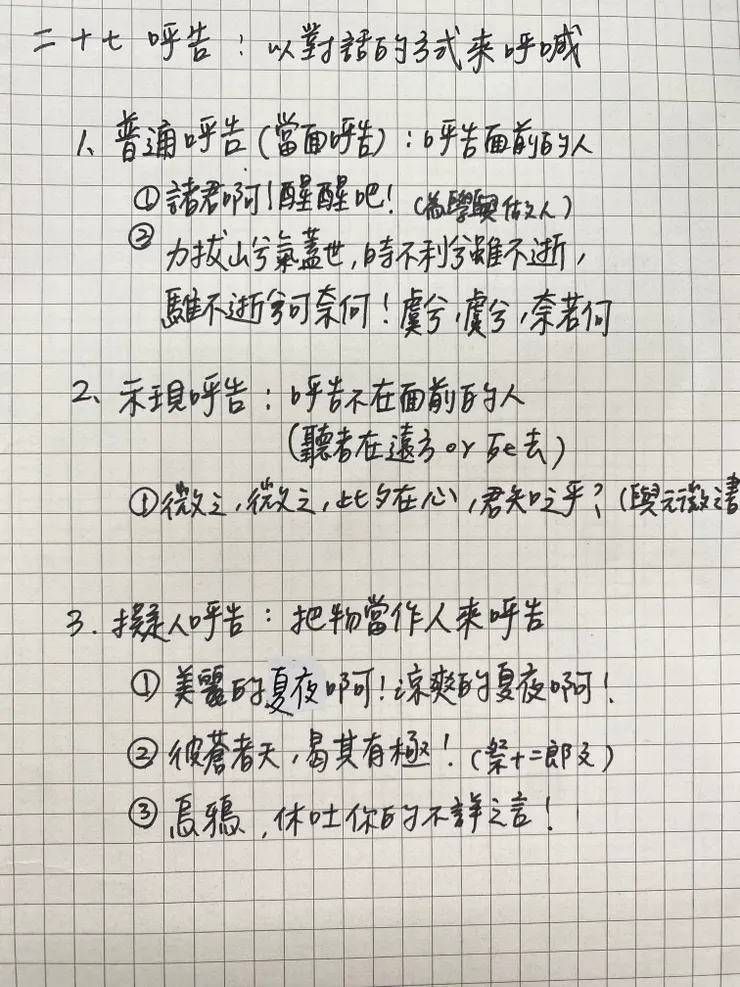 二十七 呼告：以對話的方式来呼喊
1、普通呼告(當面呼告)：呼告面前的人
①諸君啊！醒醒吧！(為學與做人)
②力拔山兮氣蓋世，時不利兮騅不逝，
騅不逝兮可奈何！虞兮，虞兮，奈若何
2、示現呼告：呼告不在面前的人
(聽者在遠方or死去)
①微之，微之，此夕在心，君知之乎？(與元微之書
3.擬人呼告：把物當作人来呼告
①美麗的夏夜啊！涼爽的夏夜啊！
②彼蒼者天，曷其有極！(祭十二郎文)
③烏鴉，休吐你的不詳之言！